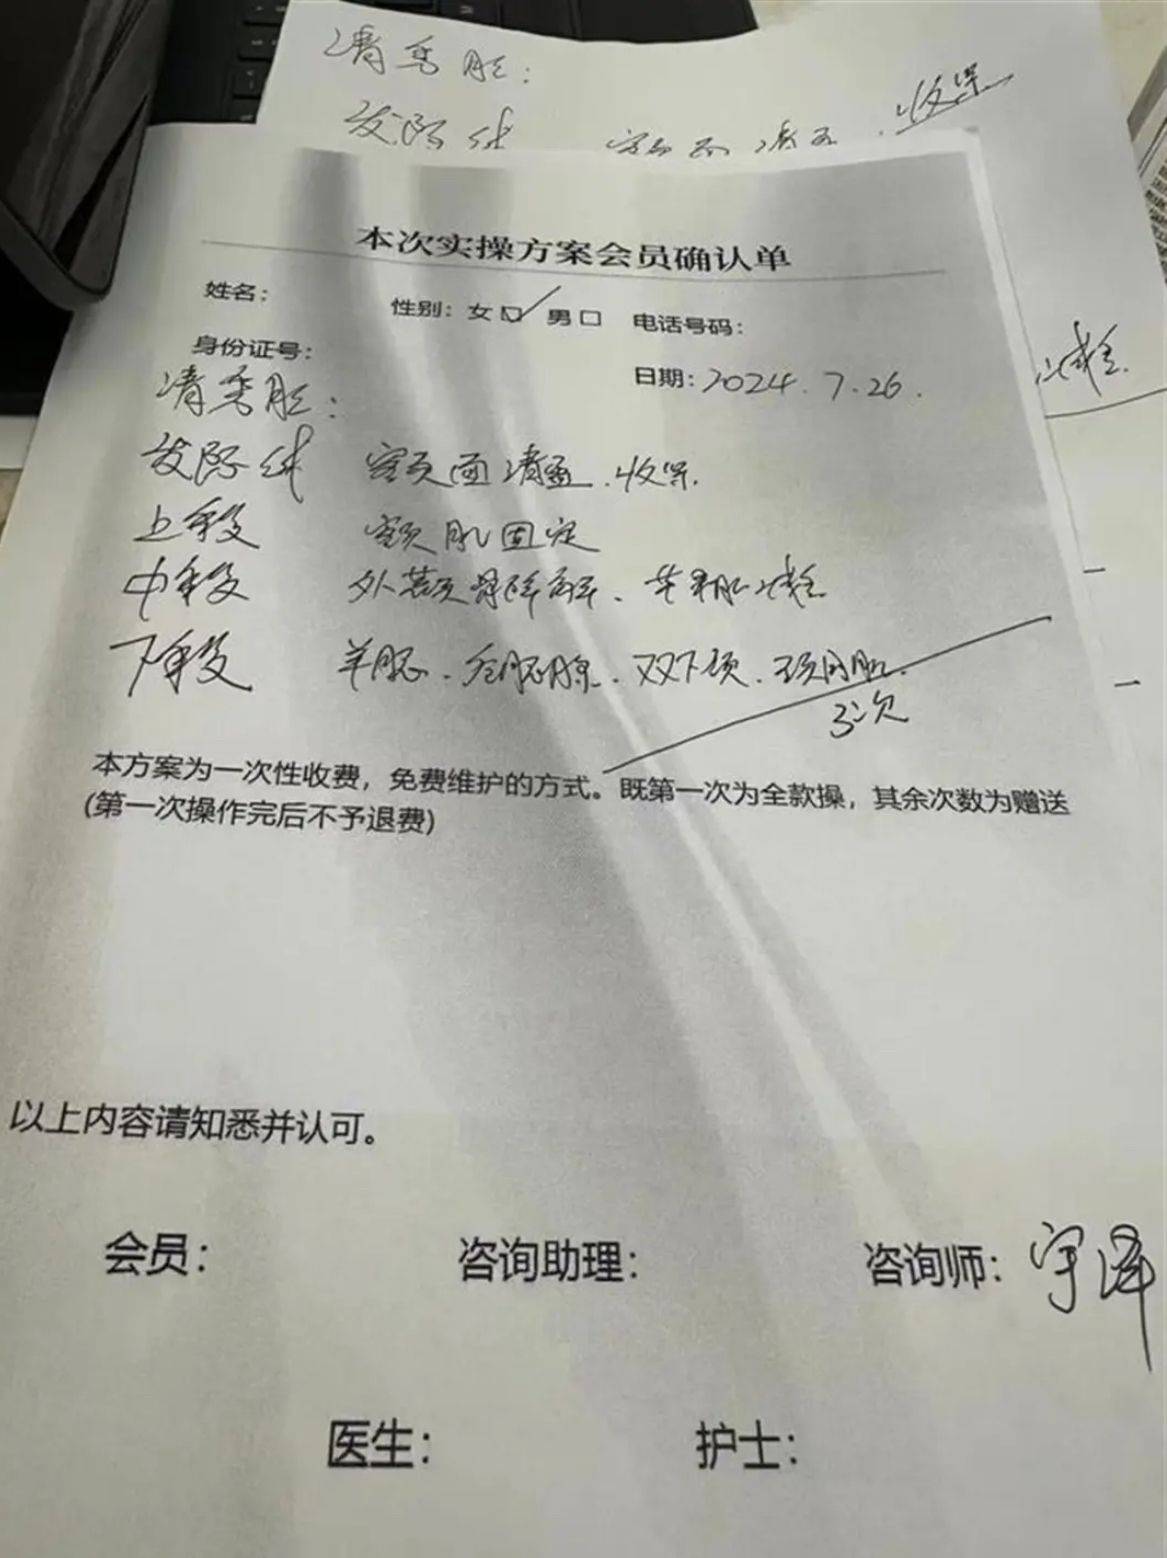 清秀脸:
发际线 收紧
本次实操方案会员确认单
姓名: 性别: 女□ 男□ 电话号码:
身份证号: 日期: 2024.7.26.
清秀脸:
发际线 额页面清 . 收紧.
上段 额肌固定
中段 外 骨降解.
下段 羊腮. 腮腺. 双下颌. 颈阔肌.
3次
本方案为一次性收费，免费维护的方式。既第一次为全款操，其余次数为赠送
(第一次操作完后不予退费)
以上内容请知悉并认可。
会员: 咨询助理: 咨询师: 宇泽
医生: 护士: